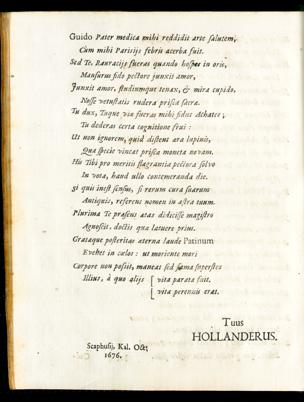 Guido Pater medica mihi reddidit arte salutem,
Cum mihi Parisijs febris acerba fuit.
Sed Te. Rauracijs fueras quando hospes in oris,
Mansurus fido pectore junxit amor,
Junxit amor, studiumque tenax, & mira cupido,
Nosse vetustatis rudera prisca sacra.
Tu dux, Tuque via fueras mihi fidus Achates;
Tu dederas certa cognitione frui:
Ut non ignorem, quid distent æra lupinis,
Qua specie vincat prisca moneta novam.
His Tibi pro meritis flagrantia pectora solvo
In vota, haud ullo contemeranda die.
si quis inest sensus, si rerum cura suarum
Antiquis, referent nomen in astra tuum.
Plurima Te præsens ætas didicisse magistro
Agnoscit, doctis quæ latuere prius.
Grataque posteritas æterna laude Patinum
Evehet in cælos: ut moriente mori
Corpore non possit, maneas sed fama superstes
Illius, à quo alijs [ vita parata fuit.
[ vita perennis erat.
Tuus
HOLLANDERUS.
Scaphusij, Kal. Oct;
1676.